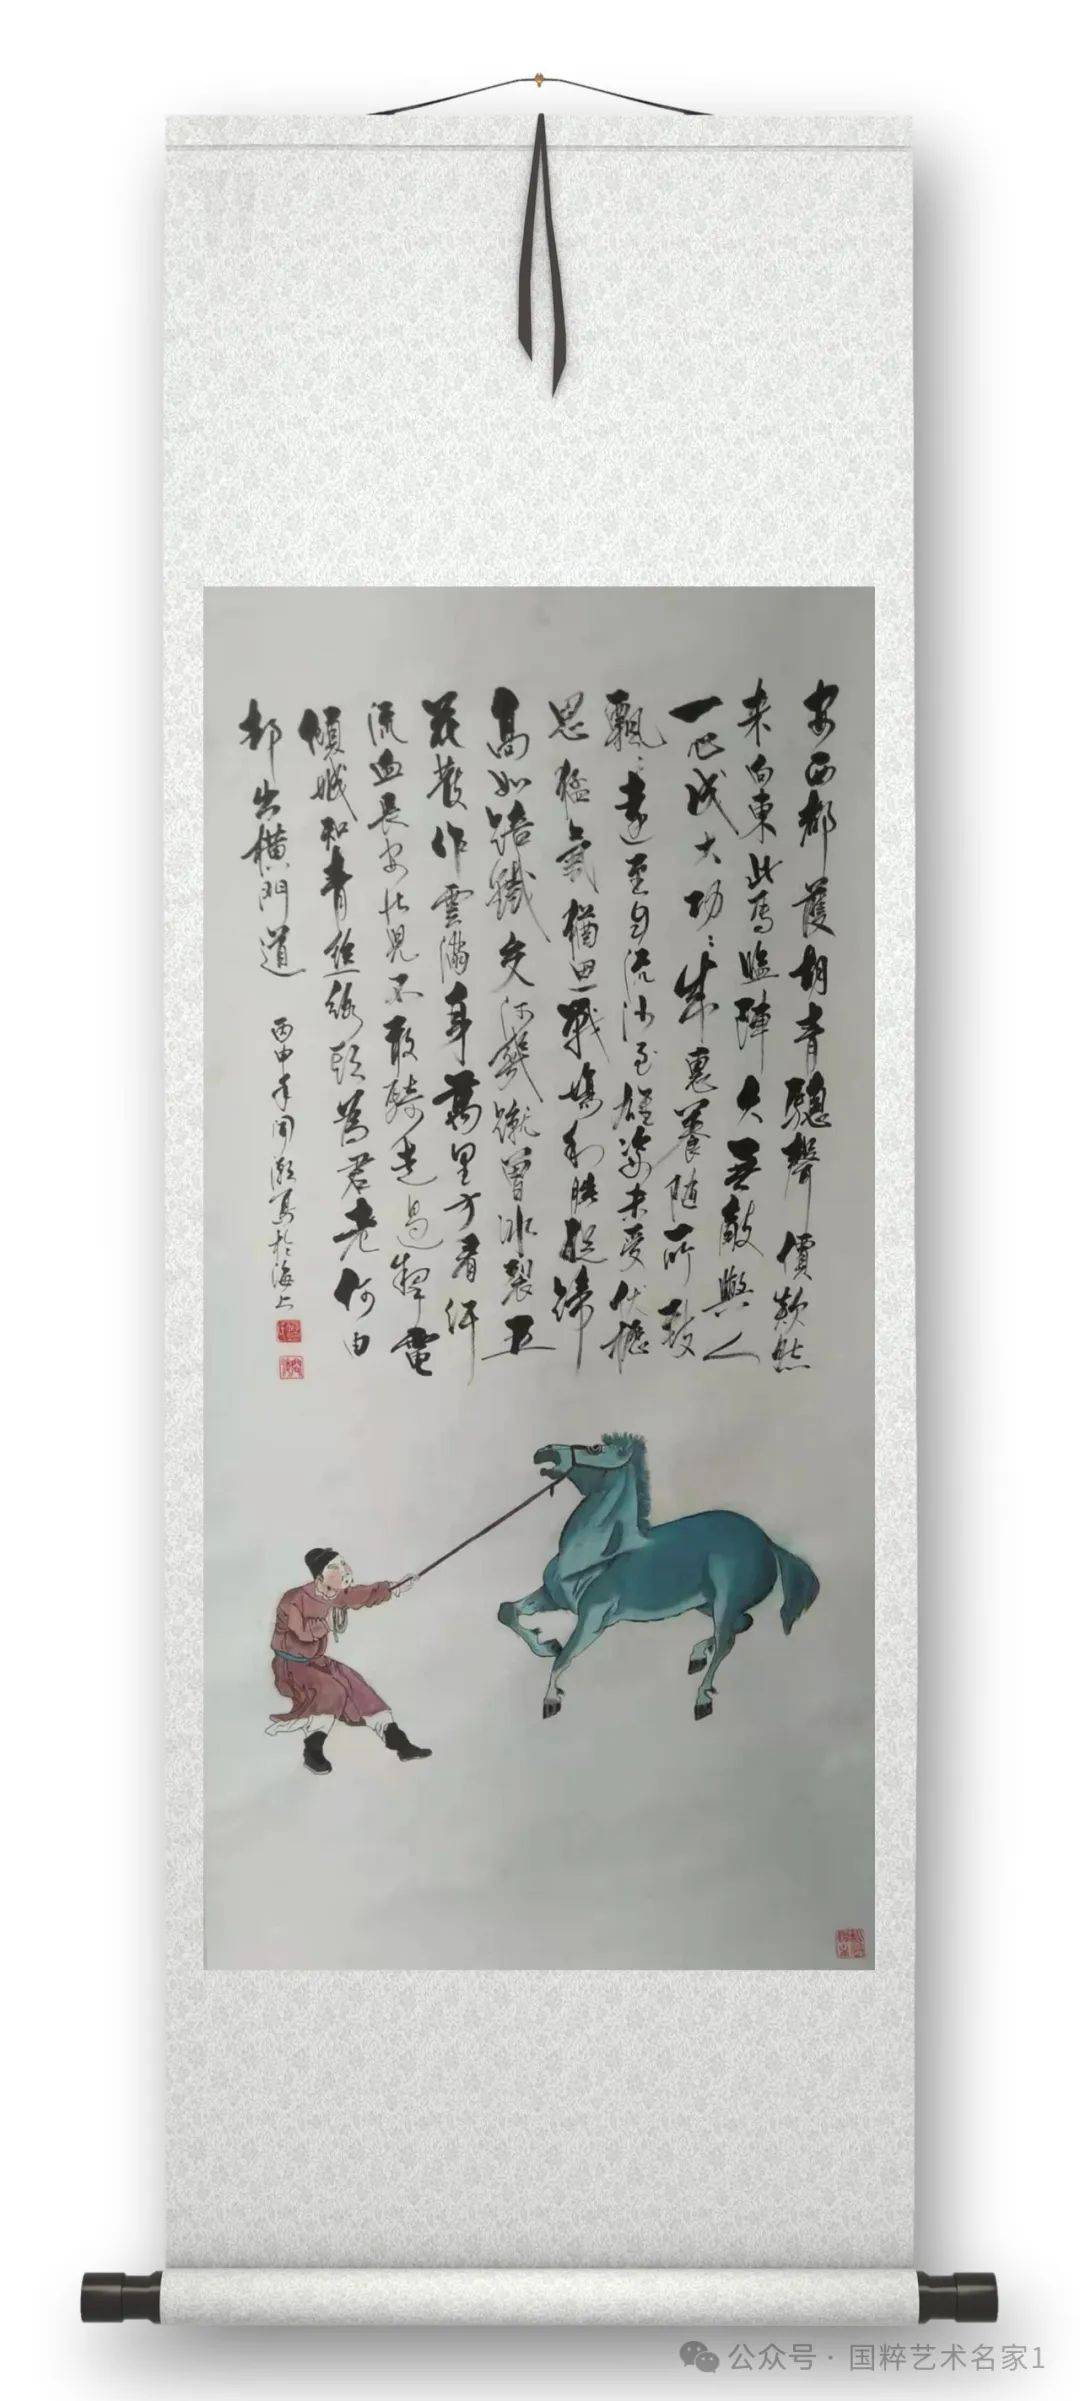 安西都護胡青驄聲價欻然
来向東此馬臨陣久無敵與人
一心成大功〻成惠養随所致
飄〻遠至自流沙至雄姿未受伏櫪
恩猛氣猶思戰場利腕促蹄
高如踣鐵交河幾蹴曾冰裂五
花散作雲滿身萬里方看汗
流血長安壮児不敢騎走過掣電
傾城知青丝络頭為君老何由
却出横門道
丙申年闻潮寫於海上
公众号 · 国粹艺术名家1